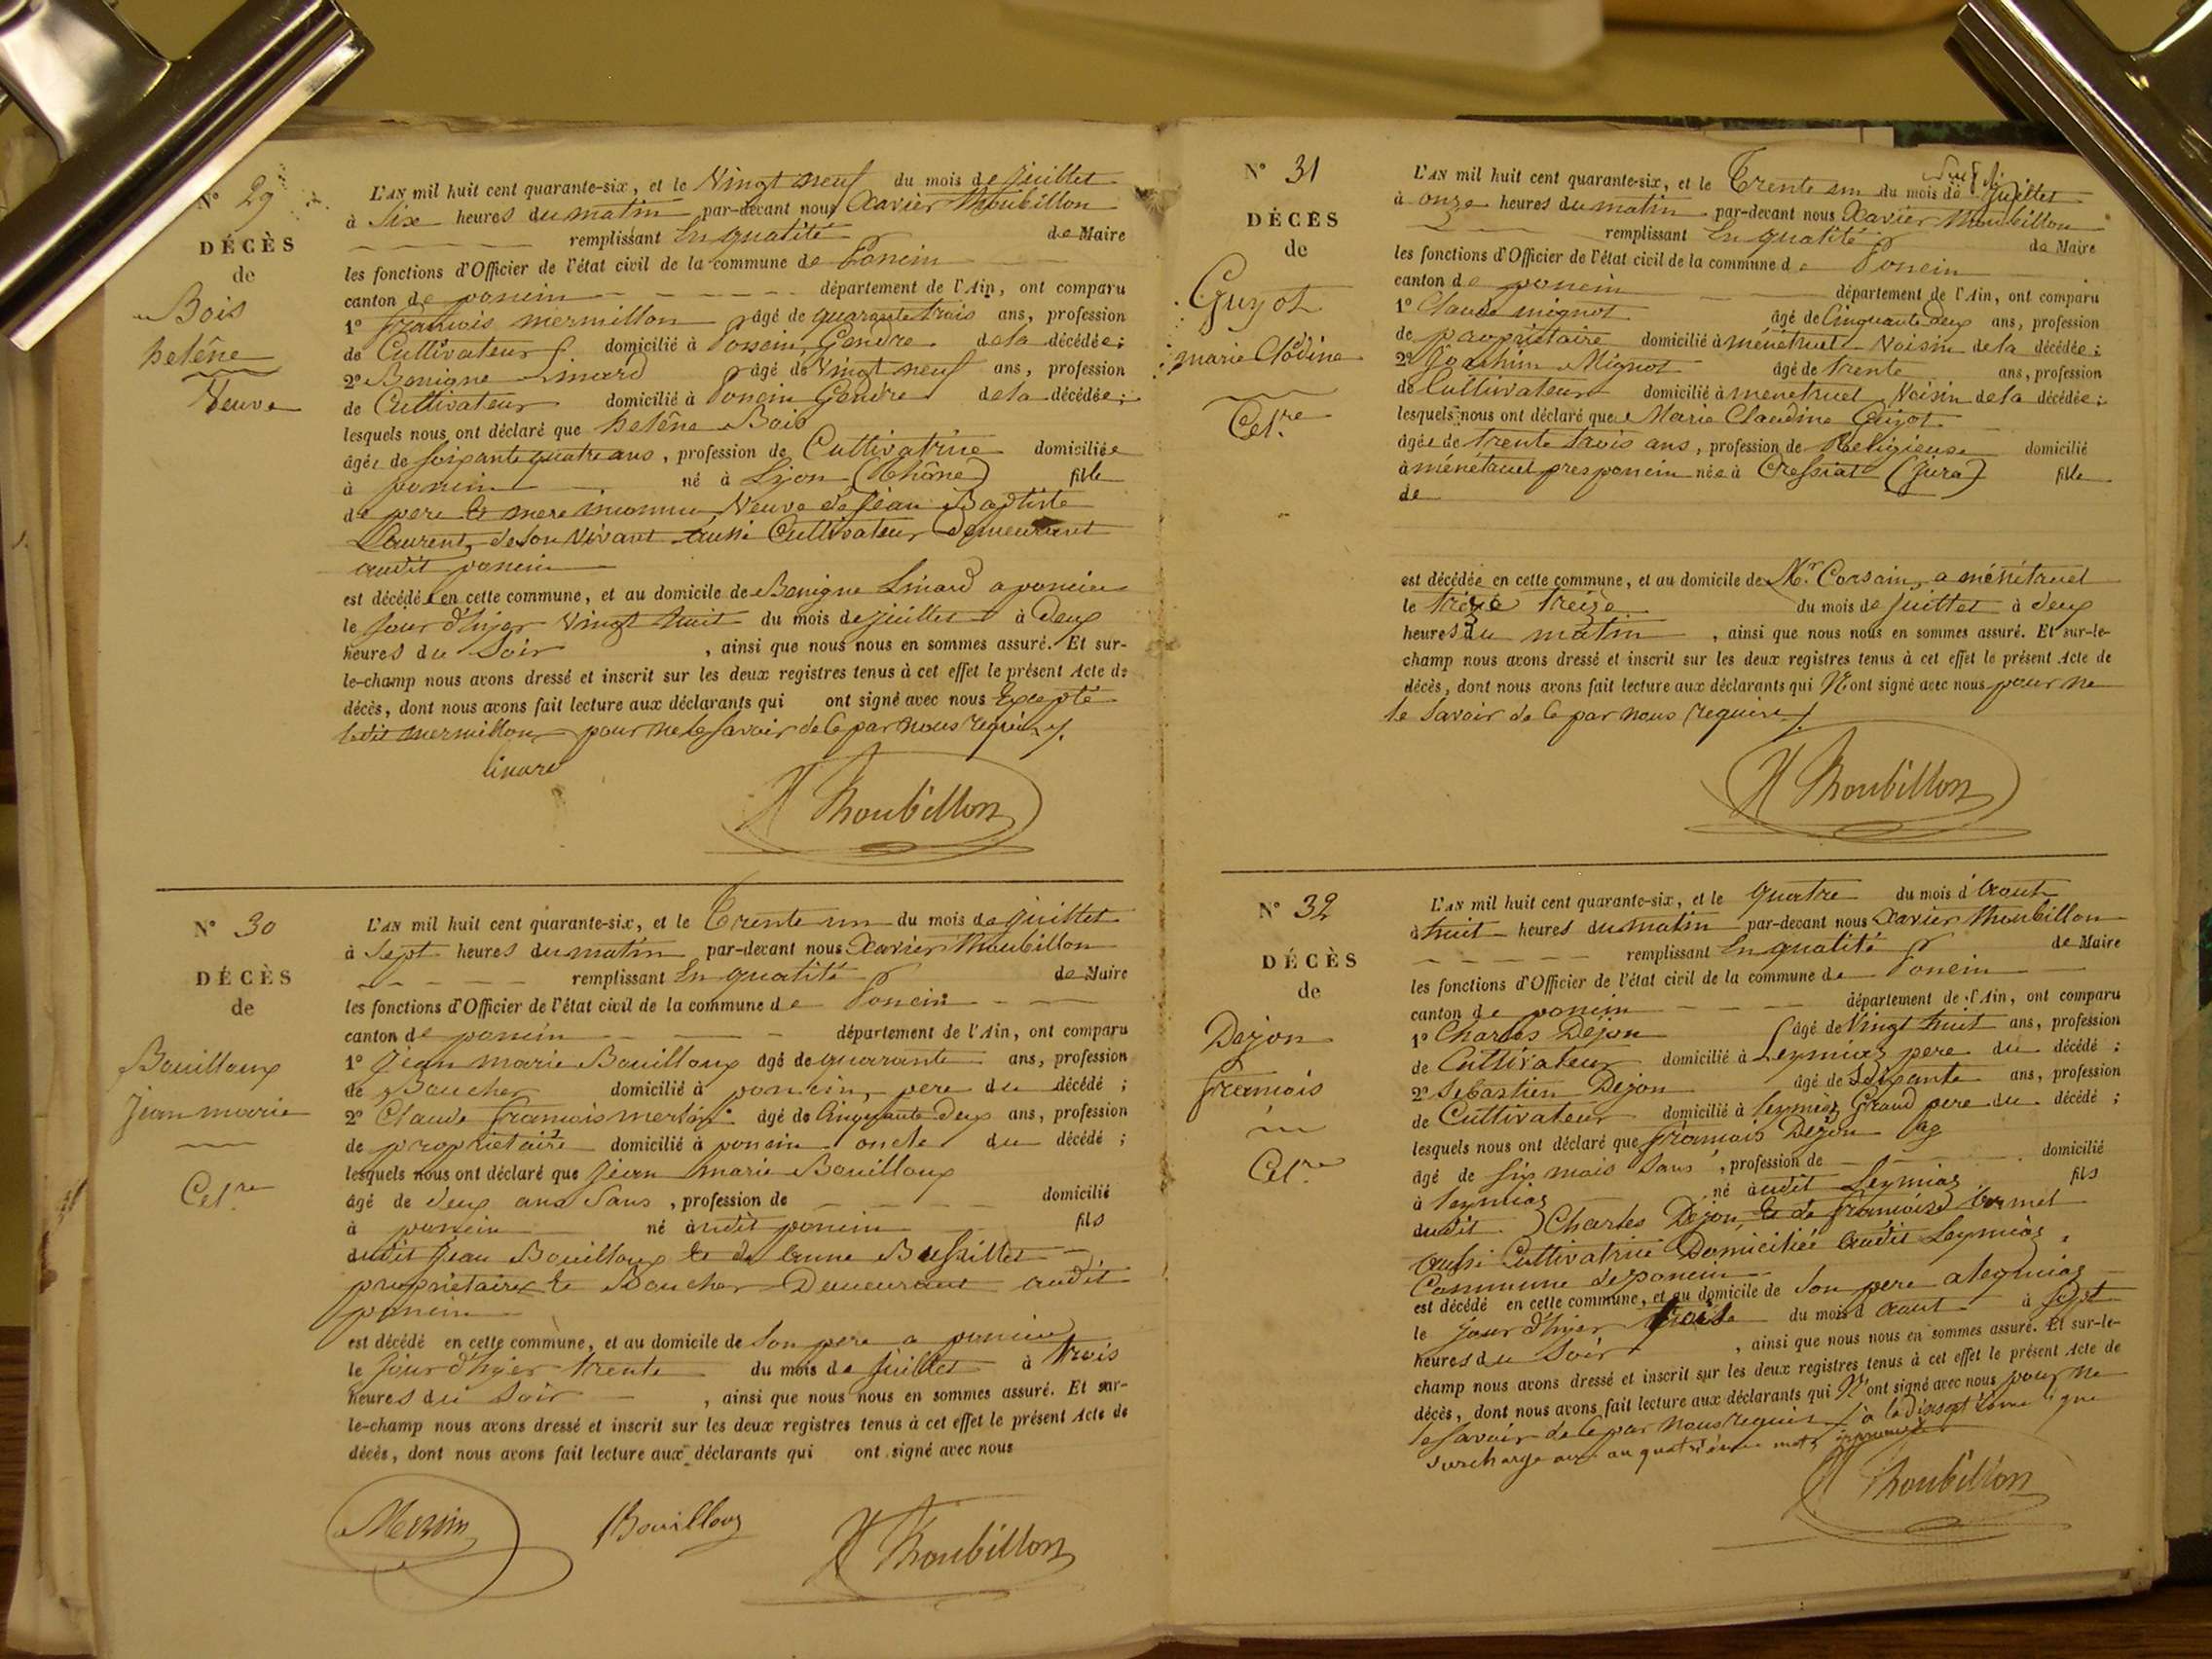 N° 29
DÉCÈS
de
Bois
helène
Veuve
L'AN mil huit cent quarante-six, et le Vingt neuf du mois de juillet
à Six heures du matin par-devant nous Xavier Thoubillon
remplissant En qualité de Maire
les fonctions d'Officier de l'état civil de la commune de Poncin
canton de poncin département de l'Ain, ont comparu
1° françois mermillon âgé de quarante trois ans, profession
de Cultivateur domicilié à Poncin Gendre de la décédée;
2° Benigne Linard âgé de Vingt neuf ans, profession
de Cultivateur domicilié à Poncin Gendre de la décédée;
lesquels nous ont déclaré que helène Bois
âgée de soixante quatre ans, profession de Cultivatrice domiciliée
à poncin né à Lyon (Rhône) fille
de pere & mere inconnu Veuve de Jean Baptiste
Laurent, de son Vivant aussi Cultivateur Demeurant
audit poncin
est décédée en cette commune, et au domicile de Benigne Linard a poncin
le jour d'hyer Vingt huit du mois de juillet à Deux
heures du Soir, ainsi que nous nous en sommes assuré. Et sur-
le-champ nous avons dressé et inscrit sur les deux registres tenus à cet effet le présent Acte de
décès, dont nous avons fait lecture aux déclarants qui ont signé avec nous Excepté
ledit mermillon pour ne le savoir de ce par nous requis /.
linard
X Thoubillon
N° 30
DÉCÈS
de
Bouilloux
jean marie
Cel.re
L'AN mil huit cent quarante-six, et le Trente un du mois de juillet
à Sept heures du matin par-devant nous Xavier Thoubillon
remplissant En qualité de Maire
les fonctions d'Officier de l'état civil de la commune de Poncin
canton de poncin département de l'Ain, ont comparu
1° Jean marie Bouilloux âgé de quarante ans, profession
de Boucher domicilié à poncin, pere du décédé;
2° Claude françois âgé de Cinquante Deux ans, profession
de propriétaire domicilié à poncin oncle du décédé;
lesquels nous ont déclaré que Jean marie Bouilloux
âgé de deux ans Sans, profession de domicilié
à poncin né audit poncin fils
dudit Jean Bouilloux & de Anne
propriétaire & Boucher Demeurant audit
poncin
est décédé en cette commune, et au domicile de Son pere a poncin
le jour d'hyer trente du mois de juillet à trois
heures du Soir, ainsi que nous nous en sommes assuré. Et sur-
le-champ nous avons dressé et inscrit sur les deux registres tenus à cet effet le présent Acte de
décès, dont nous avons fait lecture aux déclarants qui ont signé avec nous
Bouilloux
X Thoubillon
N° 31
DÉCÈS
de
Guyot
marie Clodine
Cel.re
L'AN mil huit cent quarante-six, et le Trente un du mois de Juillet
à onze heures du matin par-devant nous Xavier Thoubillon
remplissant En qualité de Maire
les fonctions d'Officier de l'état civil de la commune de Poncin
canton de poncin département de l'Ain, ont comparu
1° Claude mignot âgé de Cinquante deux ans, profession
de propriétaire domicilié à ménétruel Voisin de la décédée;
2° Joachim Mignot âgé de trente ans, profession
de Cultivateur domicilié à menetruel Voisin de la décédée;
lesquels nous ont déclaré que Marie Claudine Guyot
âgée de trente trois ans, profession de Religieuse domicilié
à ménétruel pres poncin née à Cressiat (Jura) fille
de
est décédée en cette commune, et au domicile de Mr Corsain, a ménétruel
le treize treize du mois de juillet à deux
heures du matin, ainsi que nous nous en sommes assuré. Et sur-le-
champ nous avons dressé et inscrit sur les deux registres tenus à cet effet le présent Acte de
décès, dont nous avons fait lecture aux déclarants qui N'ont signé avec nous pour ne
le savoir de ce par nous requis /.
X Thoubillon
N° 32
DÉCÈS
de
Dejon
françois
Cel.re
L'AN mil huit cent quarante-six, et le quatre du mois d'Aout
à huit heures du matin par-devant nous Xavier Thoubillon
remplissant En qualité de Maire
les fonctions d'Officier de l'état civil de la commune de Poncin
canton de poncin département de l'Ain, ont comparu
1° Charles Dejon âgé de Vingt huit ans, profession
de Cultivateur domicilié à Leymiaz pere du décédé;
2° Sebastien Dejon âgé de Soixante ans, profession
de Cultivateur domicilié à leymiaz Grand pere du décédé;
lesquels nous ont déclaré que françois Dejon
âgé de six mois Sans, profession de domicilié
à leymiaz né audit Leymiaz fils
dudit Charles Dejon, & de françoise
aussi Cultivatrice Domiciliée Audit Leymiaz,
Commune de poncin
est décédé en cette commune, et au domicile de Son pere a leymiaz
le jour d'hyer trois du mois d'aout à sept
heures du Soir, ainsi que nous nous en sommes assuré. Et sur-le-
champ nous avons dressé et inscrit sur les deux registres tenus à cet effet le présent Acte de
décès, dont nous avons fait lecture aux déclarants qui N'ont signé avec nous pour ne
le savoir de ce par nous requis / à la Dixseptième ligne
surcharge au quatrième mot approuvée
X Thoubillon